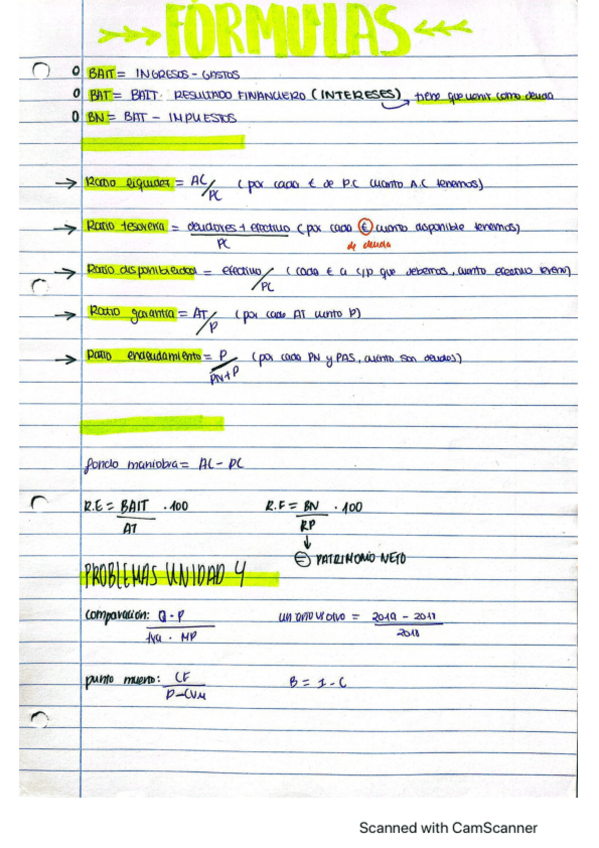 FÓRMULAS
BAIT = INGRESOS - GASTOS
BAT = BAIT - RESULTADO FINANCIERO (INTERESES) tiene que venir como deuda
BN = BAT - IMPUESTOS
→ Ratio liquidez = AC/PC (por cada € de P.C cuanto A.C tenemos)
→ Ratio tesorería = deudores + efectivo / PC (por cada € cuanto disponible tenemos)
de deuda
→ Ratio disponibilidad = efectivo/PC (cada € a c/p que debemos, cuanto efectivo tenem)
→ Ratio garantía = AT/P (por cada AT cuanto P)
→ Ratio endeudamiento = P/PN+P (por cada PN y PAS, cuanto son deudas)
fondo maniobra = AC - PC
R.E = BAIT/AT · 100 R.F = BN/RP · 100
↓
= PATRIMONIO NETO
PROBLEMAS UNIDAD 4
comparación: Q · P / · MP = 2019 - 2018 / 2018
punto muerto: CF / P-CVM B = I - C
Scanned with CamScanner